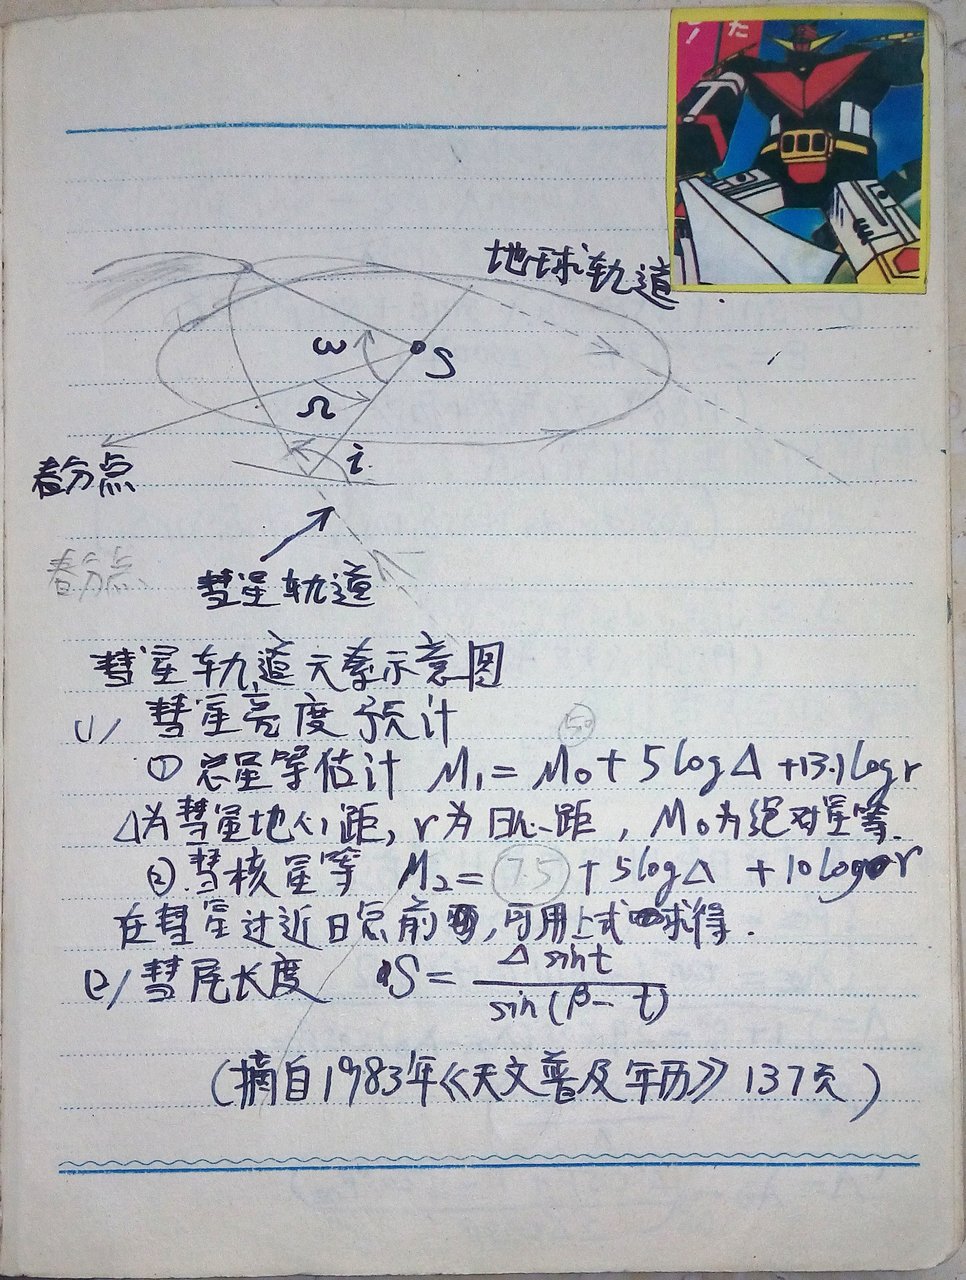 た
地球轨道
ω
S
Ω
i
春分点
春分点
彗星轨道
彗星轨道元素示意图
(1) 彗星亮度预计
5.0
① 总星等估计 M₁ = M₀ + 5 log Δ + 13.1 log r
Δ为彗星地心距, r为日心距, M₀为绝对星等.
②.彗核星等 M₂ = 7.5 + 5 log Δ + 10 log r
在彗星过近日点前, 可用上式求得.
(2) 彗尾长度 S = Δ sin t / sin(β - t)
(摘自1983年《天文普及年历》137页)